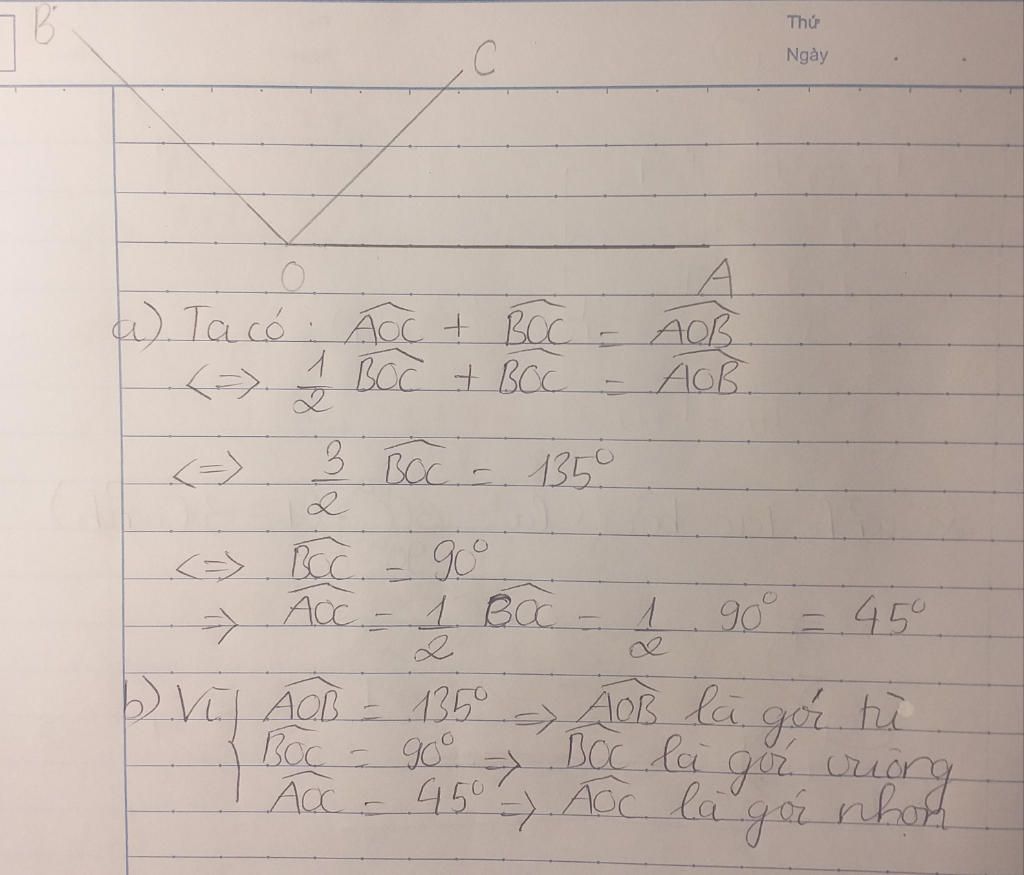 B
Thứ
C
Ngày
O
A
a) Ta có : $\widehat{AOC}$ + $\widehat{BOC}$ = $\widehat{AOB}$
<=> $\frac{1}{2}$ $\widehat{BOC}$ + $\widehat{BOC}$ = $\widehat{AOB}$
<=> $\frac{3}{2}$ $\widehat{BOC}$ = 135°
<=> $\widehat{BOC}$ = 90°
=> $\widehat{AOC}$ = $\frac{1}{2}$ $\widehat{BOC}$ = $\frac{1}{2}$ . 90° = 45°
b) Vì { $\widehat{AOB}$ = 135° => $\widehat{AOB}$ là góc tù
$\widehat{BOC}$ = 90° => $\widehat{BOC}$ là góc vuông
$\widehat{AOC}$ = 45° => $\widehat{AOC}$ là góc nhọn